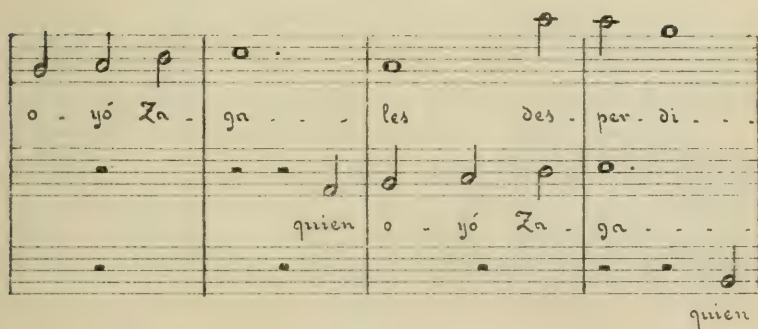 o - yó Za - ga - - - les des - per - di - - -
quien o - yó Za - ga - - - -
quien